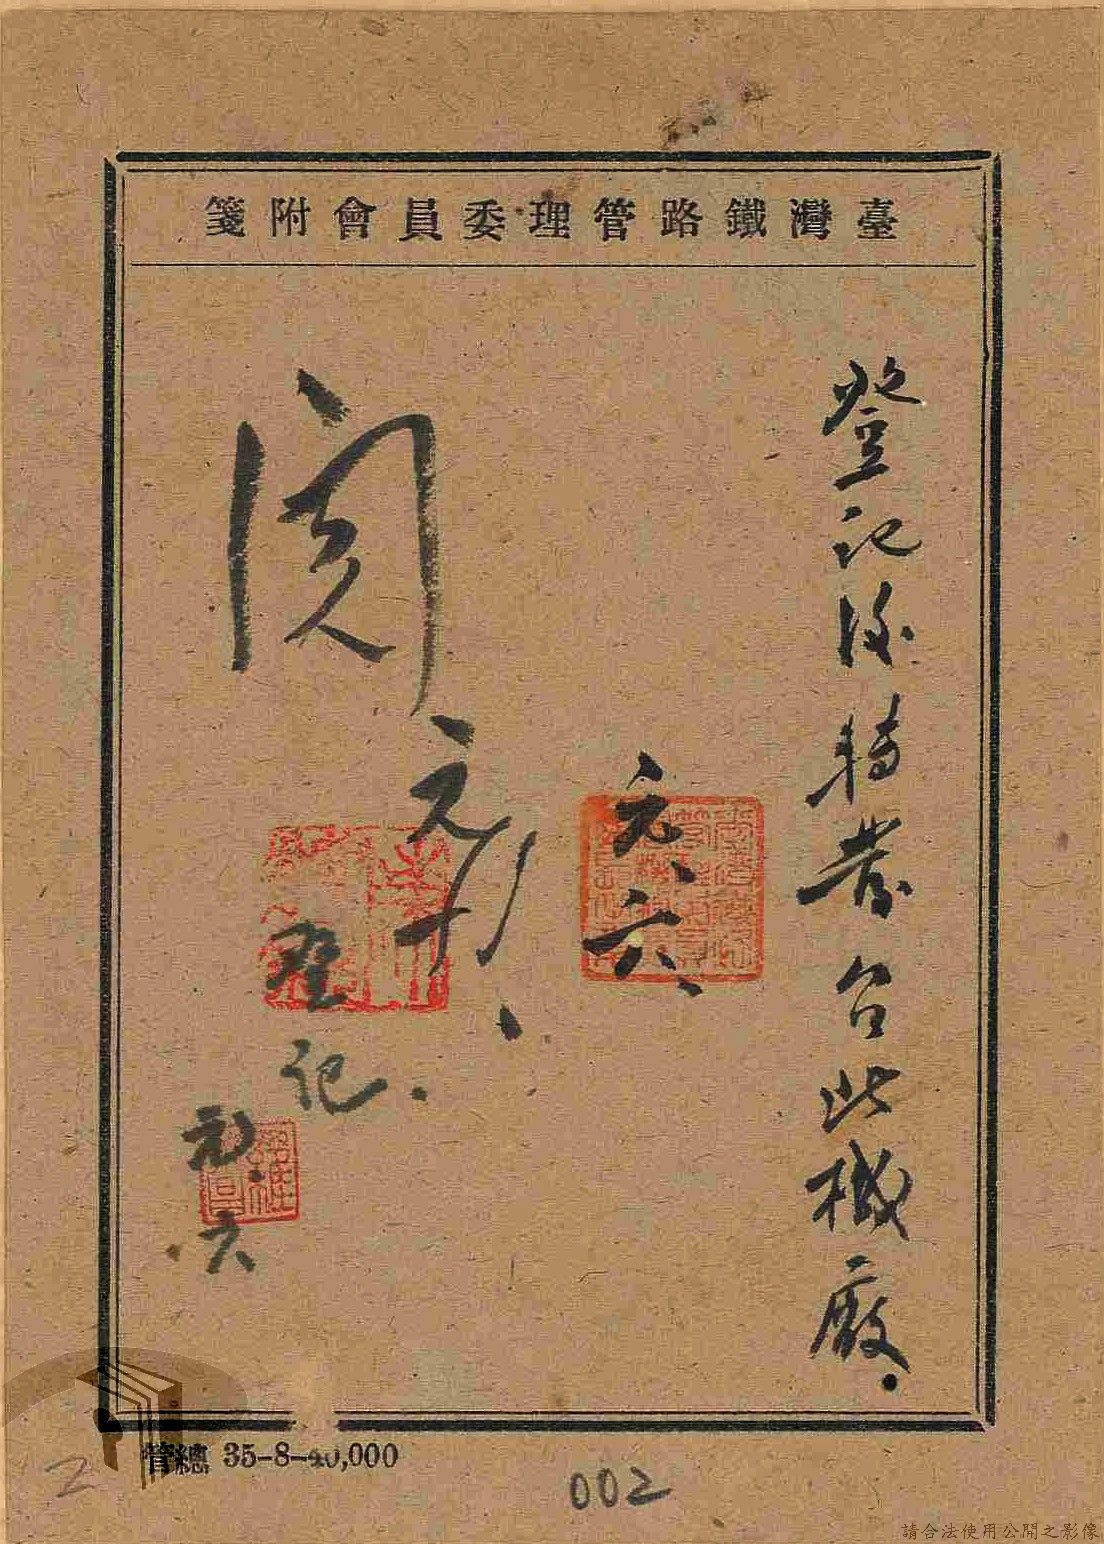 臺灣鐵路管理委員會附箋
登記後轉發台北機廠.
元、六、
閱
元
登記.
元.六
總管 35-8-40,000
2
002
請合法使用公開之影像